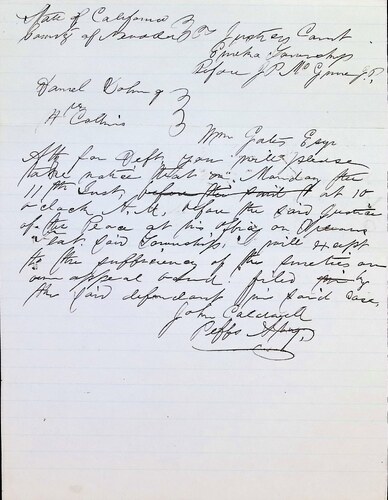 State of California }
County of Nevada } SS Justices Court
Eureka Township
Before J.P. McGinnis J.P.
Daniel
vs
H Collins
Wm Gates Esqr
Atty for Deft you will please
take notice that on Monday the
11th Inst. before the said at 10
o clock A.M. before the said Justice
of the Peace at his office on
Flat said Township, I will except
to the sufficiency of the sureties on
an appeal bond filed by
the said defendant in said case
John Caldwell
Peffs Atty.